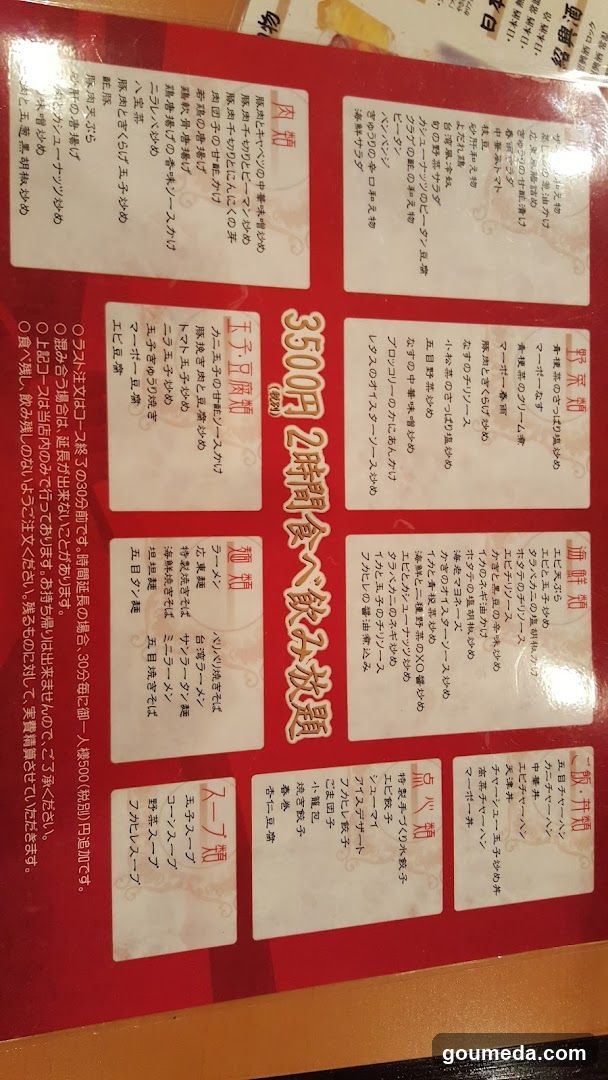 きゅうりの甘酢漬け
春雨サラダ
中華風トマト
枝豆
砂肝和え物
よだれ鶏
台湾風冷奴
旬の野菜サラダ
カシューナッツのピータン豆腐
クラゲの酢の和え物
ピータン
きゅうりの辛口和え物
バンバンジ
海鮮サラダ
野菜類
青梗菜のさっぱり塩炒め
マーボーなす
青梗菜のクリーム煮
マーボー春雨
豚肉ときくらげ炒め
なすのチリソース
小松菜のさっぱり塩炒め
五目野菜炒め
なすの中華味噌炒め
ブロッコリーのかにあんかけ
レタスのオイスターソース炒め
海鮮類
エビ天ぷら
エビと玉子炒め
タラバカテの塩胡椒かけ
ホタテのチリソース
エビチリソース
かきと黒豆の辛味炒め
イカのネギ油かけ
ホタテの塩胡椒炒め
海老マヨネーズ
かきのオイスターソース炒め
イカと青梗菜炒め
海鮮と二種野菜のXO醤炒め
エビとカシューナッツ炒め
タラバカニのネギ炒め
イカと玉子のチリソース
フカヒレの醤油煮込み
ご飯・丼類
五目チャーハン
カニチャーハン
中華丼
エビチャーハン
天津丼
チャーシュー玉子炒め丼
高菜チャーハン
マーボー丼
3500円(税別) 2時間食べ飲み放題
点火類
特製手づくり水餃子
エビ餃子
シューマイ
アイスデザート
フカヒレ餃子
ごま団子
小籠包
焼き餃子
春巻
杏仁豆腐
肉類
豚肉とキャベツの中華味噌炒め
豚肉千切りとピーマン炒め
豚肉千切りとにんにくの芽
肉団子の甘酢かけ
若鶏の唐揚げ
鶏軟骨唐揚げ
鶏唐揚げの香味ソースかけ
ニラレバ炒め
八宝菜
豚肉ときくらげ玉子炒め
酢豚
豚肉天ぷら
肝の唐揚げ
カシューナッツ炒め
味噌炒め
肉と玉葱黒胡椒炒め
玉子・豆腐類
カニ玉子の甘酢ソースかけ
豚挽き肉と豆腐炒め
トマト玉子炒め
ニラ玉子炒め
玉子きゅうり焼き
マーボー豆腐
エビ豆腐
麺類
ラーメン バリバリ焼きそば
広東麺 台湾ラーメン
特製焼きそば サンラータン麺
海鮮焼きそば ミニラーメン
坦坦麺 五目焼きそば
五目タン麺
スープ類
玉子スープ
コーンスープ
野菜スープ
フカヒレスープ
○ラスト注文はコース終了の30分前です。時間延長の場合、30分毎に御一人様500(税別)円追加です。
○混み合う場合は、延長が出来ないことがあります。
○上記コースは当店内のみで行っております。お持ち帰りは出来ませんので、ご了承ください。
○食べ残し、飲み残しのないようご注文ください。残るものに対して、実費精算させていただきます。
goumeda.com